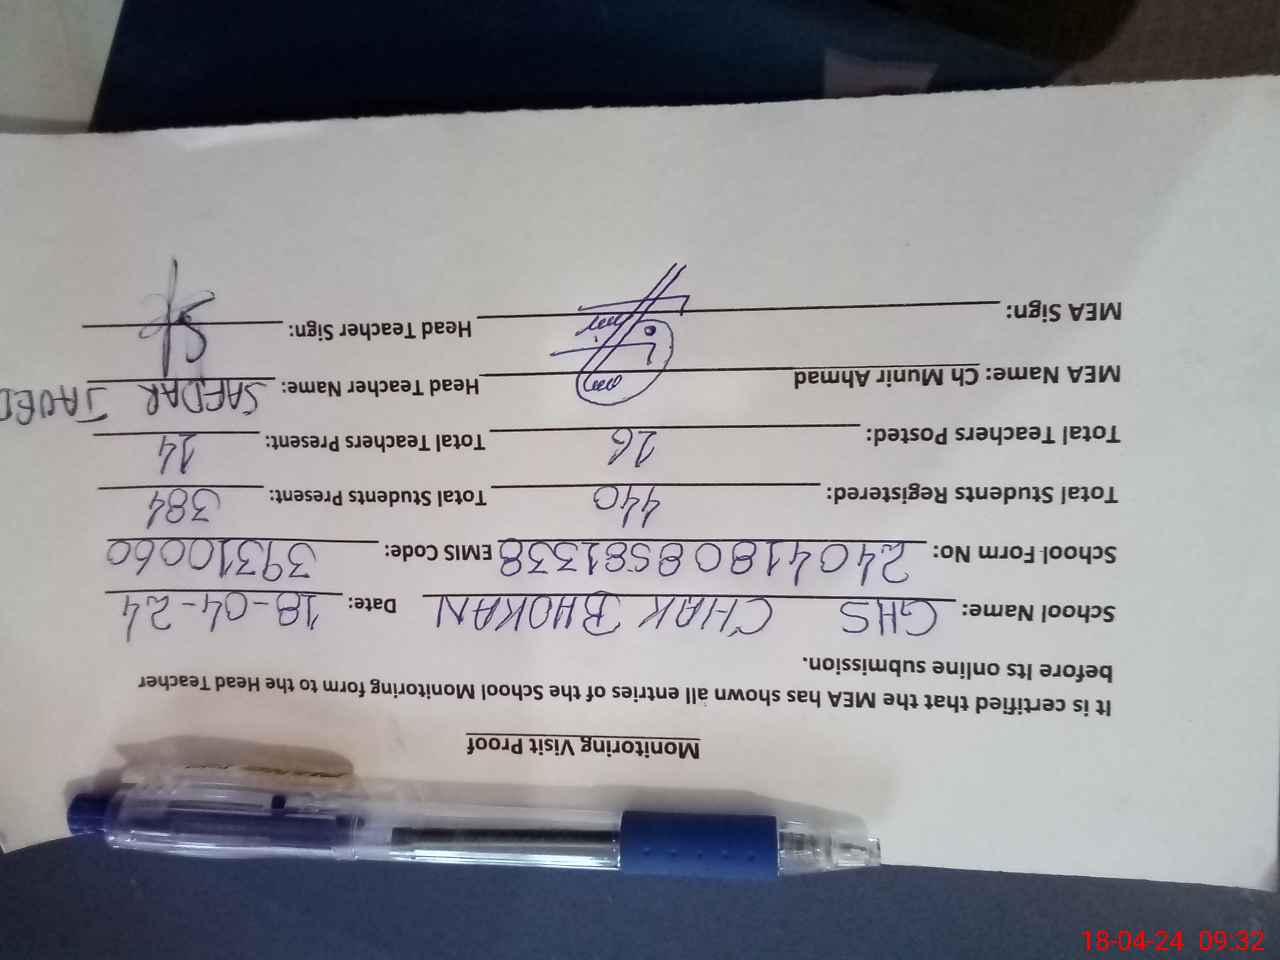 Monitoring Visit Proof
It is certified that the MEA has shown all entries of the School Monitoring form to the Head Teacher
before Its online submission.
School Name: GHS CHAK BHOKAN Date: 18-04-24
School Form No: 24041808581338 EMIS Code: 39310060
Total Students Registered: 440 Total Students Present: 384
Total Teachers Posted: 16 Total Teachers Present: 14
MEA Name: Ch Munir Ahmad Head Teacher Name: SAFDAR JAVED
MEA Sign: Head Teacher Sign:
18-04-24 09:32